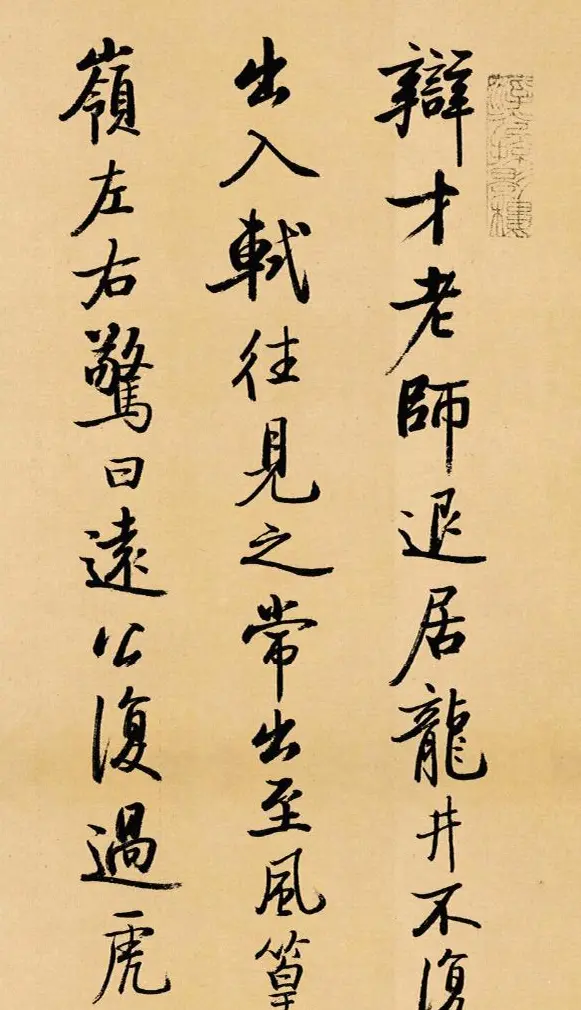 辯才老師退居龍井不復
出入軾往見之常出至風篁
嶺左右驚曰遠公復過虎